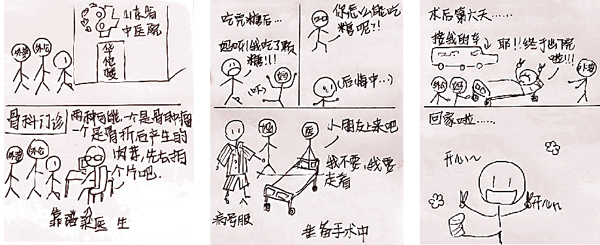 山东省
中医院
外公
外婆
骨科门诊
两种可能,一个是骨肿瘤
一个是骨折后产生的
肉芽,先去拍
个片吧.
靠谱梁医生
吃完糖后…
妈呀!我吃了颗
糖!!!
你怎么能吃
糖呢?!!
(后悔中…)
小朋友上来吧
我不要,我要
走着
病号服
准备手术中
术后第六天……
接我的车
耶!!终于出院
啦!!!
回家啦……
开心~
开心~